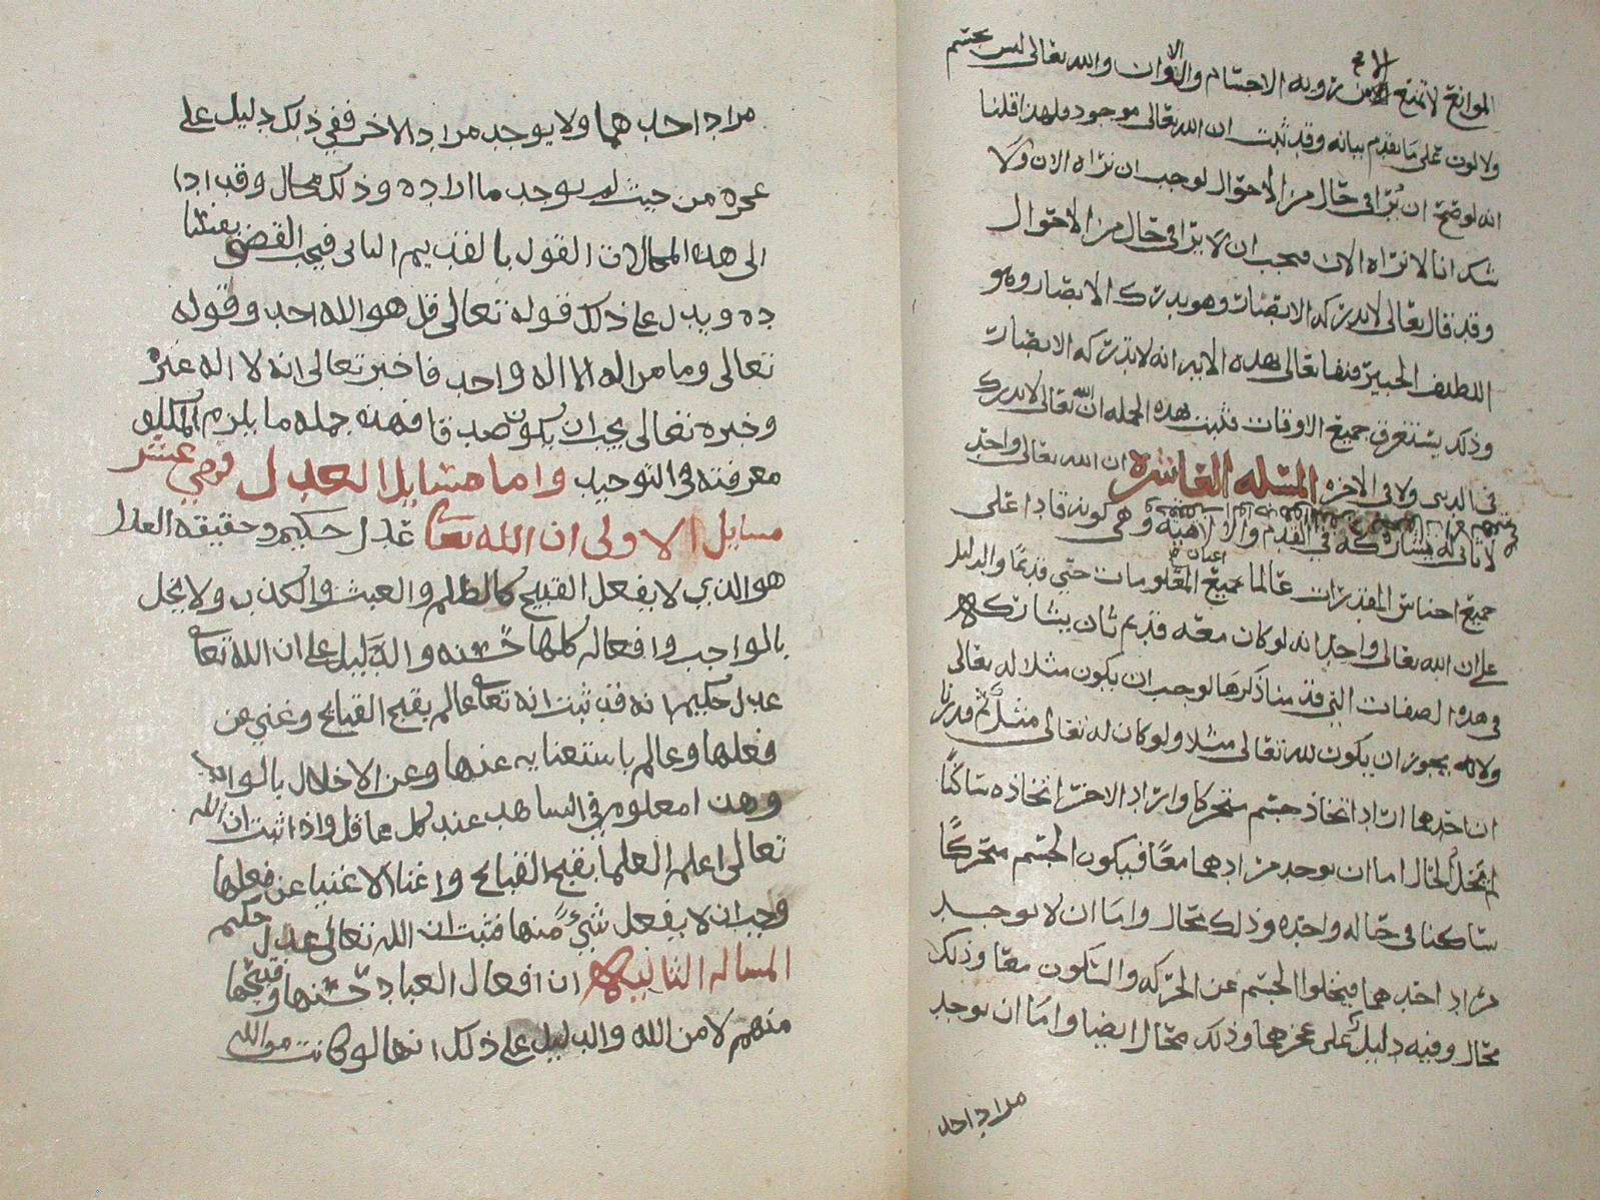 الموانع لا تمنع الا من رويه الاجسام والالوان والله تعالى ليس بجسم
ولا لون على ما تقدم بيانه وقد ثبت ان الله تعالى موجود ولهذا قلنا
انه لو صح ان يُرا في حال من الاحوال لوجب ان نراه الان ولا
شك انا لا نراه الان فيجب ان لا يرا في حال من الاحوال
وقد قال تعالى لا تدركه الابصار وهو يدرك الابصار وهو
اللطيف الخبير فنفا تعالى بهذه الايه انه لا تدركه الابصار
وذلك يستغرق جميع الاوقات فثبت بهذه الجمله ان الله تعالى لا يدرك
في الدنيا ولا في الاخره المسله العاشره ان الله تعالى واحد
لا ثاني له يشاركه في القدم والالاهية وهي كونه قادرا على
جميع اجناس المقدرات عالما بجميع اعيان المعلومات حتي قديمًا والدليل
على ان الله تعالى واحد انه لو كان معه قديم ثان يشاركه
في هذه الصفات التي قدمنا ذكرها لوجب ان يكون مثلا له تعالى
ولانه يجوز ان يكون لله تعالى مثلا ولو كان له تعالى مثل ثم قدرنا
ان احدهما اراد اتخاذ جسم متحركا واراد الاخر اتخاذه ساكنًا
لم يخل الحال اما ان يوجد مرادهما معًا فيكون الجسم متحركًا
ساكنا في حاله واحده وذلك محال واما ان لا يوجد
مراد احدهما فيخلوا الجسم عن الحركه والسكون معًا وذلك
محال وفيه دليل على عجزهما وذلك محال ايضا واما ان يوجد
مراد احد
مراد احدهما ولا يوجد مراد الاخر ففي ذلك دليل على
عجزه من حيث لم يوجد ما اراده وذلك محال وقد ادا
الى هذه المحالات القول بالقديم الثاني فيجب القضى بفسا
ده ويدل على ذلك قوله تعالى قل هو الله احد وقوله
تعالى وما من اله الا اله واحد فاخبر تعالى انه لا اله غيره
وخبره تعالى يجب ان يكون صدقا فهذه جمله ما يلزم المكلف
معرفته في التوحيد واما مسايل العدل فهي عشر
مسايل الاولى ان الله تعا عدل حكيم وحقيقه العدل
هو الذي لا يفعل القبيح كالظلم والعبث والكذب ولا يخل
بالواجب وافعاله كلها حسنه والدليل على ان الله تعا
عدل حكيم انه قد ثبت انه تعا عالم بقبح القبايح وغني عن
فعلها وعالم باستغنايه عنها وعن الاخلال بالواجب
وهذا معلوم في الشاهد عند كل عاقل واذا ثبت ان الله
تعالى اعلم العلما بقبح القبايح واغنا الاغنيا عن فعلها
وجب ان لا يفعل شيءً منها فثبت ان الله تعالى عدل حكيم
المساله الثانيه ان افعال العباد حسنها وقبيحها
منهم لا من الله والدليل على ذلك انها لو كانت من الله